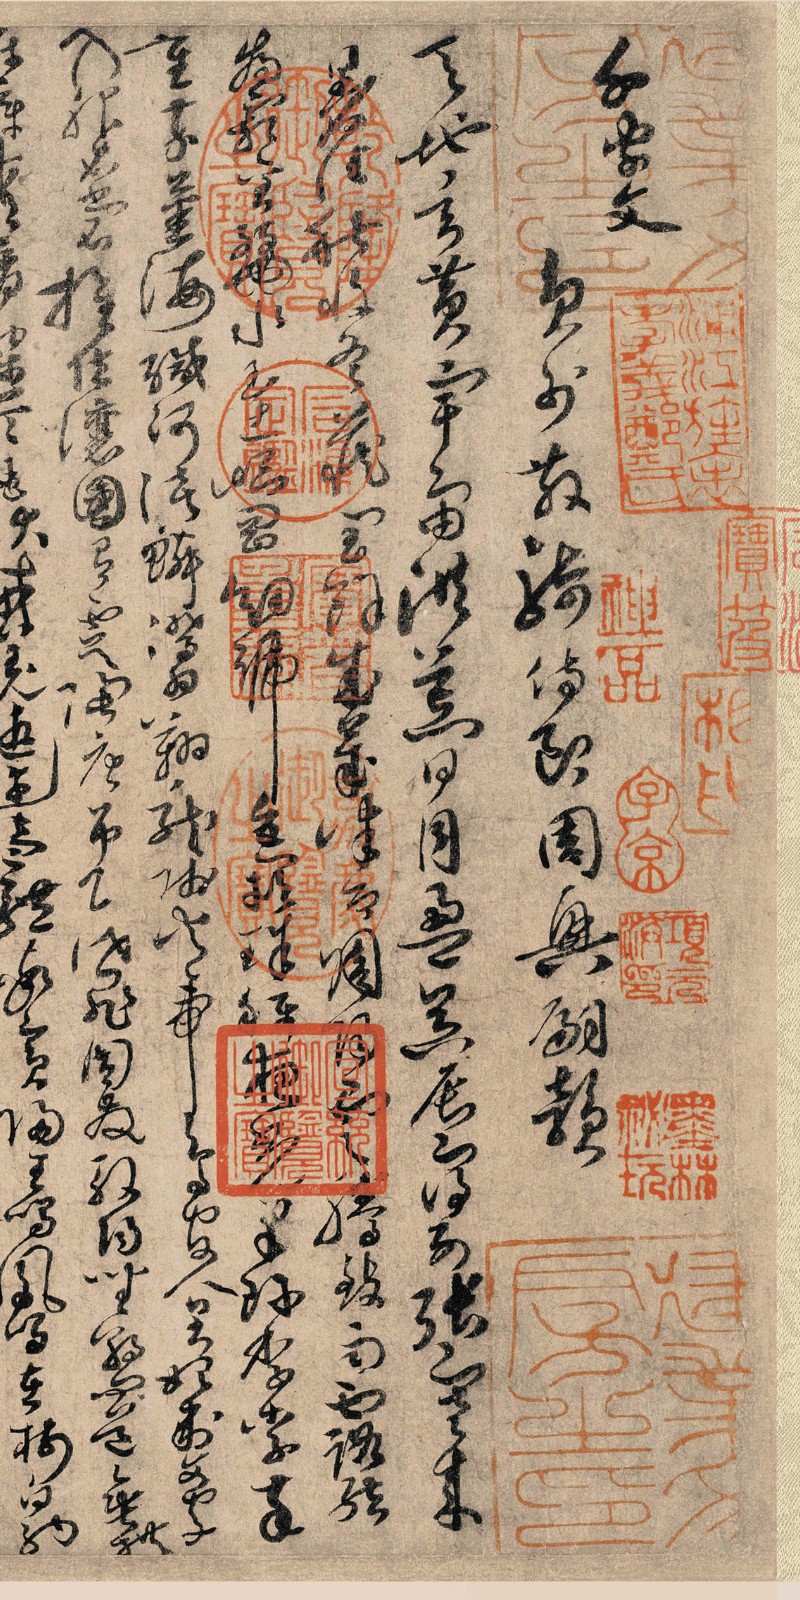 千字文
員外散騎侍郎周興嗣韻
天地玄黃宇宙洪荒日月盈昃辰宿列張寒來
暑往秋收冬藏閏餘成歲律呂調陽雲騰致雨露結
為霜金生麗水玉出崑岡劍號巨闕珠稱夜光果珍李柰菜
重芥薑海鹹河淡鱗潛羽翔龍師火帝鳥官人皇始制文字
乃服衣裳推位讓國有虞陶唐弔民伐罪周發殷湯坐朝問道垂拱
平章愛育黎首臣伏戎羌遐邇壹體率賓歸王鳴鳳在樹白駒
神品
子京
墨林秘玩
乾隆御覽之寶
嘉慶御覽之寶
宣統御覽之寶